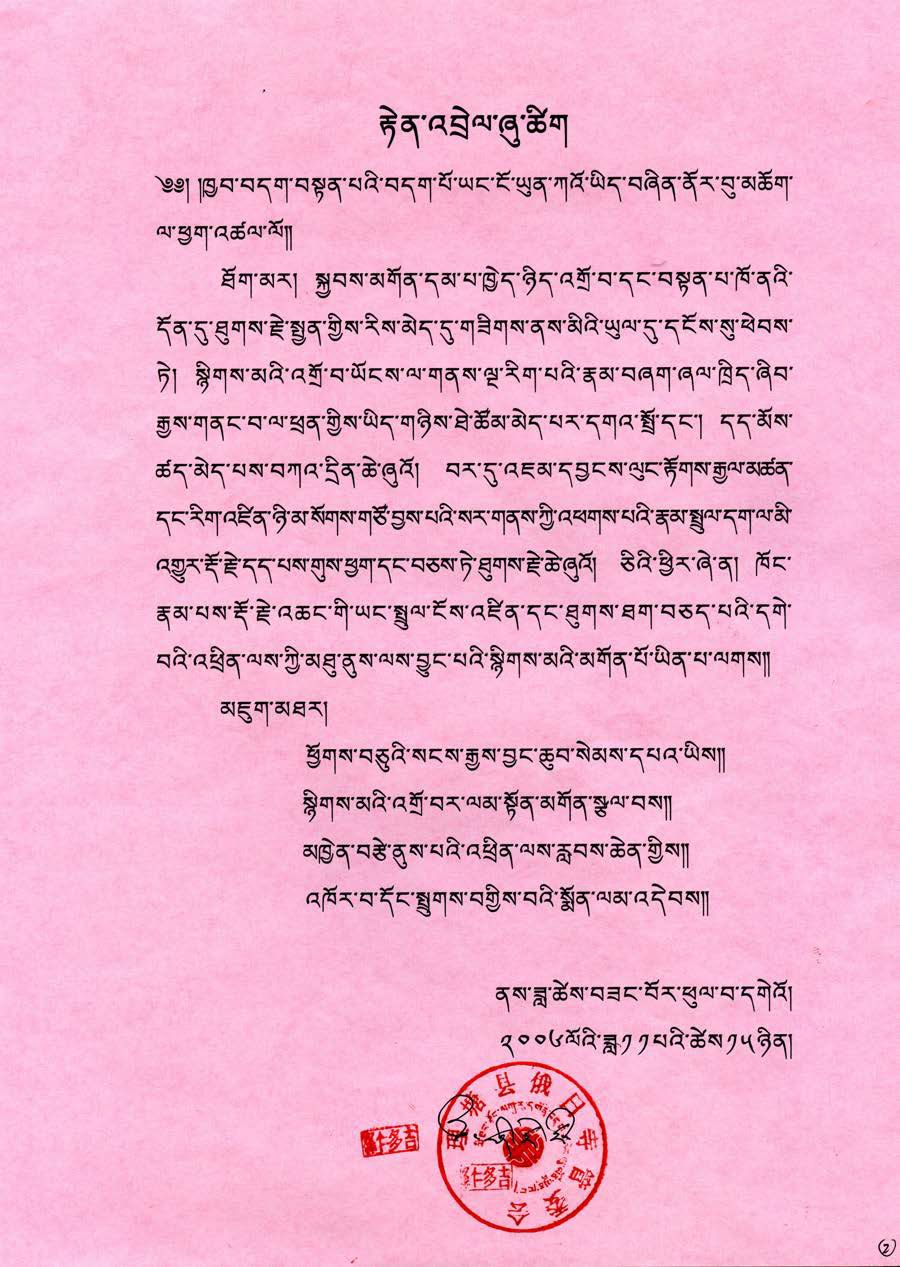 རྟེན་འབྲེལ་ཞུ་ཚིག
༄༅། །ཁྱབ་བདག་བསྟན་པའི་བདག་པོ་ཡང་ངོ་ཡུན་ཀའོ་ཡིད་བཞིན་ནོར་བུ་མཆོག་
ལ་ཕྱག་འཚལ་ལོ༎
ཐོག་མར། སྐྱབས་མགོན་དམ་པ་ཁྱེད་ཉིད་འགྲོ་བ་དང་བསྟན་པ་ཁོ་ནའི་
དོན་དུ་ཐུགས་རྗེ་སྤྱན་གྱིས་རིས་མེད་དུ་གཟིགས་ནས་མིའི་ཡུལ་དུ་དངོས་སུ་ཕེབས་
ཏེ། སྙིགས་མའི་འགྲོ་བ་ཡོངས་ལ་གནས་ལྔ་རིག་པའི་རྣམ་བཞག་ཞལ་ཁྲིད་ཞིབ་
རྒྱས་གནང་བ་ལ་ཕྲན་གྱིས་ཡིད་གཉིས་ཐེ་ཚོམ་མེད་པར་དགའ་སྤྲོ་དང་། དད་མོས་
ཚད་མེད་པས་བཀའ་དྲིན་ཆེ་ཞུའོ། བར་དུ་འཇམ་དབྱངས་ལུང་རྟོགས་རྒྱལ་མཚན་
དང་རིག་འཛིན་ཉི་མ་སོགས་གཙོ་བྱས་པའི་སར་གནས་ཀྱི་འཕགས་པའི་རྣམ་སྤྲུལ་དག་ལ་མི་
འགྱུར་རྡོ་རྗེ་དད་པས་གུས་ཕྱག་དང་བཅས་ཏེ་ཐུགས་རྗེ་ཆེ་ཞུའོ། ཅིའི་ཕྱིར་ཞེ་ན། ཁོང་
རྣམ་པས་རྡོ་རྗེ་འཆང་གི་ཡང་སྤྲུལ་ངོས་འཛིན་དང་ཐུགས་ཐག་བཅད་པའི་དགེ་
བའི་འཕྲིན་ལས་ཀྱི་མཐུ་ནུས་ལས་བྱུང་པའི་སྙིགས་མའི་མགོན་པོ་ཡིན་པ་ལགས༎
མཇུག་མཐར།
ཕྱོགས་བཅུའི་སངས་རྒྱས་བྱང་ཆུབ་སེམས་དཔའ་ཡིས༎
སྙིགས་མའི་འགྲོ་བར་ལམ་སྟོན་མགོན་སྩལ་བས༎
མཁྱེན་བརྩེ་ནུས་པའི་འཕྲིན་ལས་རླབས་ཆེན་གྱིས༎
འཁོར་བ་དོང་སྤྲུགས་བགྱིས་བའི་སྨོན་ལམ་འདེབས༎
ནས་ཟླ་ཚེས་བཟང་པོར་ཕུལ་བ་དགེའོ།
༢༠༠༦ལོའི་ཟླ་༡༡པའི་ཚེས༡༥ཉིན།
理塘县俄日寺管委会
仁多吉
仁多吉
2